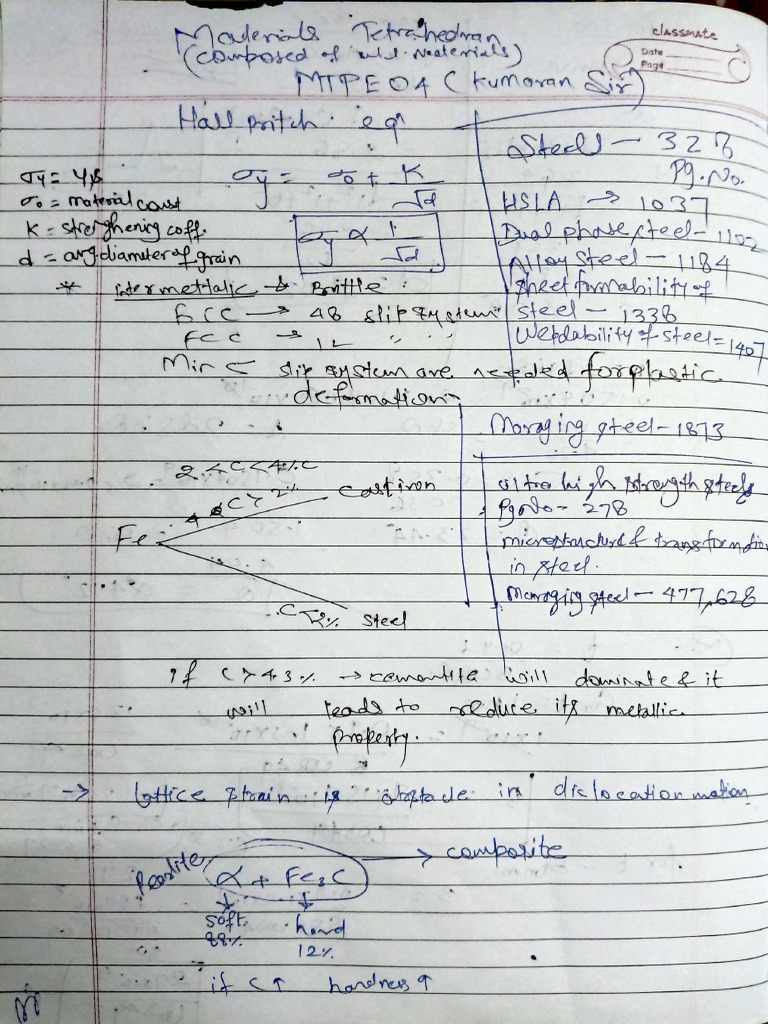 classmate
Date
Page
Materials Tetrahedran
(composed of all materials)
MTPE04 (Kumaran Sir)
Hall pritch eqn
σy = σo + K/√d
σy = y/s
σo = material const
K = strenghening coff.
d = avg diameter of grain
σy ∝ 1/√d
* intermettalic → Brittle
BCC → 48 slip system
FCC → 12 " "
Min 5 slip system are needed for plastic
deformation
Steel - 328
Pg. No.
HSLA → 1037
Dual phase steel - 1102
Alloy steel - 1184
sheet formability of
steel - 1338
Weldability of steel = 1407
Maraging steel - 1873
ultra high strength steels
Pg No - 278
microstructure & transformation
in steel.
Maraging steel - 477, 628
2 < C < 4% C
C > 2%
cast iron
Fe
C < 2%
steel
if C > 4.3% → cemantite will dominate & it
will leads to reduce its metallic
property.
→ lattice strain is obstacle in dislocation motion
Pearlite α + Fe3C → composite
soft hard
88% 12%
if C↑ hardness↑